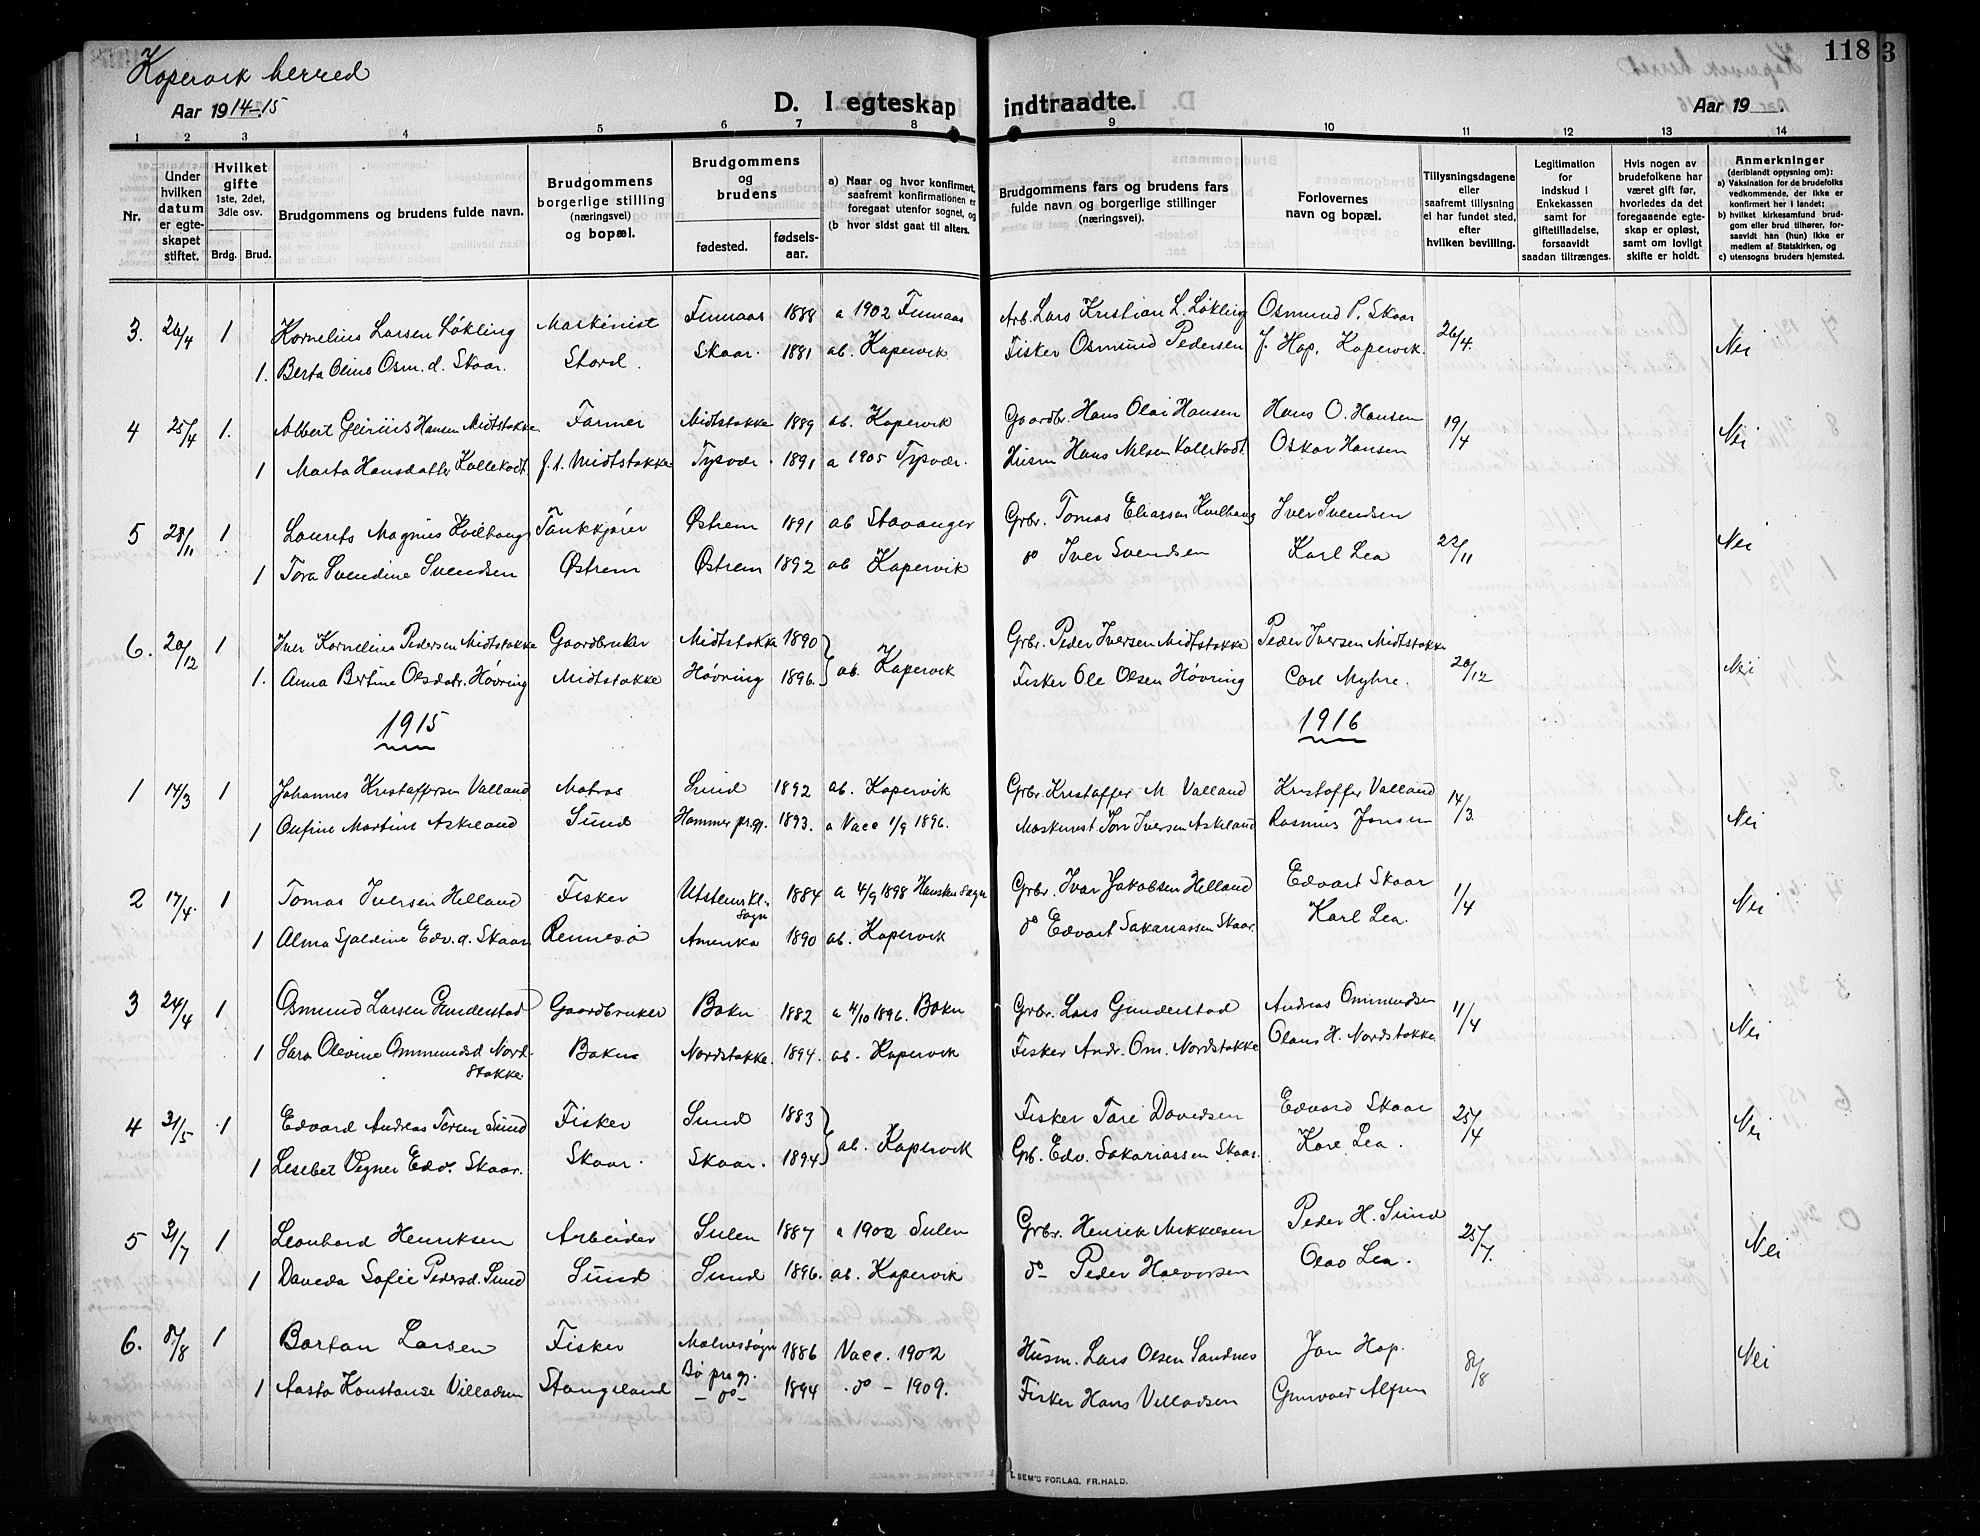 Kopervik herred
118
3
Aar 1914-15
D. I egteskap indtraadte.
Aar 19 .
1 2 3 4 5 6 7 8 9 10 11 12 13 14
Nr.
Under hvilken datum er egteskapet stiftet.
Hvilket gifte 1ste, 2det, 3die osv.
Brdg. Brud.
Brudgommens og brudens fulde navn.
Brudgommens borgerlige stilling (næringsvei) og bopæl.
Brudgommens og brudens
fødested. fødselsaar.
a) Naar og hvor konfirmert, saafremt konfirmationen er foregaat utenfor sognet, og
(b hvor sidst gaat til alters.
Brudgommens fars og brudens fars fulde navn og borgerlige stillinger (næringsvei).
Forlovernes navn og bopæl.
Tillysningsdagene eller saafremt tillysning ei har fundet sted, efter hvilken bevilling.
Legitimation for indskud i Enkekassen samt for giftetilladelse, forsaavidt saadan tiltrænges.
Hvis nogen av brudefolkene har været gift før, hvorledes da det foregaaende egteskap er opløst, samt om lovlig skifte er holdt.
Anmerkninger (deriblandt oplysning om):
a) Vaksination for de brudefolks vedkommende, der ikke er konfirmert her i landet;
b) hvilket kirkesamfund brudgom eller brud tilhører, forsaavidt han (hun) ikke er medlem af Statskirken, og
c) utensogns bruders hjemsted.
3. 26/4 1 Kornelius Larsen Løkling Maskinist Finnaas 1888 a 1902 Finnaas Arb. Lars Kristian L. Løkling Osmund P. Skaar 26/4. Nei
1. Berta Oline Osm. d. Skaar. Stord. Skaar. 1881 ab. Kopervik Fisker Osmund Pedersen J. Hop, Kopervik.
4 25/4 1. Albert Hansen Midtstokke Farmer Midtstokke 1889 ab. Kopervik Gaardbr. Hans Olai Hansen Hans O. Hansen 19/4 Nei
1 Marta Hansdatter Kallekodt f. t. Midtstokke Tysvær. 1891 a 1905 Tysvær. Husm Hans Nilsen Kallekodt. Oskar Hansen
5 28/11 1 Laurits Magnus Kvilhaug Tankkjører Østrem 1891 ab Stavanger Grbr. Tomas Eliassen Kvilhaug Iver Svendsen 22/11 Nei
1 Tora Svendine Svendsen Østrem Østrem 1892 ab Kopervik do Iver Svendsen Karl Lea
6. 20/12 1 Iver Kornelius Pedersen Midtstokke Gaardbruker Midtstokke 1890 ab. Kopervik Grbr. Peder Iversen Midtstokke Peder Iversen Midtstokke 20/12 Nei
1. Anna Bertine Olsdatr. Høvring Midtstokke Høvring 1896. Fisker Ole Olsen Høvring Carl Myhre.
1915 1916
1 14/3 1 Johannes Kristoffersen Valland Matros Sund 1892 ab. Kopervik Grbr. Kristoffer M. Valland Kristoffer Valland 14/3. Nei
1 Martine Askeland Sund Hammer pr.gj. 1893. a Vacc 1/9 1896. Maskinist Iversen Askeland Rasmus Jonsen
2 17/4. 1 Tomas Iversen Helland Fisker Utstens Kl. Sogn 1884 a 4/9 1898 Sogn Grbr. Ivar Jakobsen Helland Edvart Skaar 1/4 Nei
1 Alma Sjaldine Edv. d. Skaar Rennesø Amerika 1890 ab. Kopervik do Edvart Sakariassen Skaar. Karl Lea.
3 24/4 1 Osmund Larsen Gunderstad Gaardbruker Bokn 1882 a 4/10 1896. Bokn Grbr. Lars Gunderstad Andreas Ommundsen 11/4 Nei
1 Sara Olevine Ommundsd Nordstokke Bokn Nordstokke. 1894. ab. Kopervik Fisker Andr. Om. Nordstokke Olaus H. Nordstokke.
4 31/5 1 Edvard Andreas Toresen Sund Fisker Sund 1883 ab. Kopervik Fisker Tore Davidsen Edvard Skaar 25/4 Nei
1 Lisebet Edv. Skaar. Skaar. Skaar. 1894 Gb. Edv. Sakariassen Skaar. Karl Lea.
5 31/7 1 Leonhard Henriksen Arbeider Sulen 1887 a 1902 Sulen Grbr. Henrik Mikkelsen Peder H. Sund 25/7. Nei
1 Daveda Sofie Pedersd. Sund Sund Sund 1896. ab. Kopervik do- Peder Halvorsen Olav Lea.
6. 8/8 1 Bartan Larsen Fisker Malnes sogn 1886 Vacc. 1902 Husm. Lars Olsen Sandnes Jon Hop. 8/8 Nei
1 Aasta Konstanse Villadsen Stangeland Bø pr.gj. -do- 1894 do - 1909. Fisker Hans Villadsen Gunvald Alfsen
SEM'S FORLAG, FR.HALD.